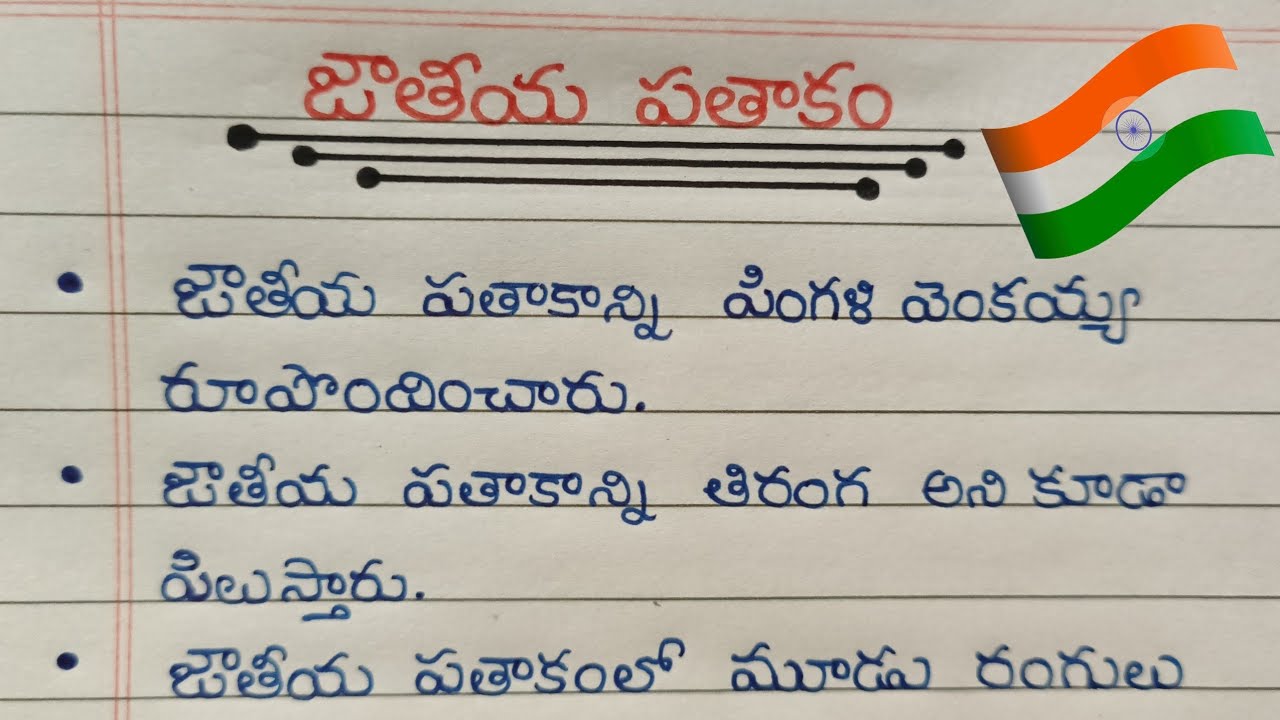 జాతీయ పతాకం
• జాతీయ పతాకాన్ని పింగళి వెంకయ్య
రూపొందించారు.
• జాతీయ పతాకాన్ని తిరంగ అని కూడా
పిలుస్తారు.
• జాతీయ పతాకంలో మూడు రంగులు